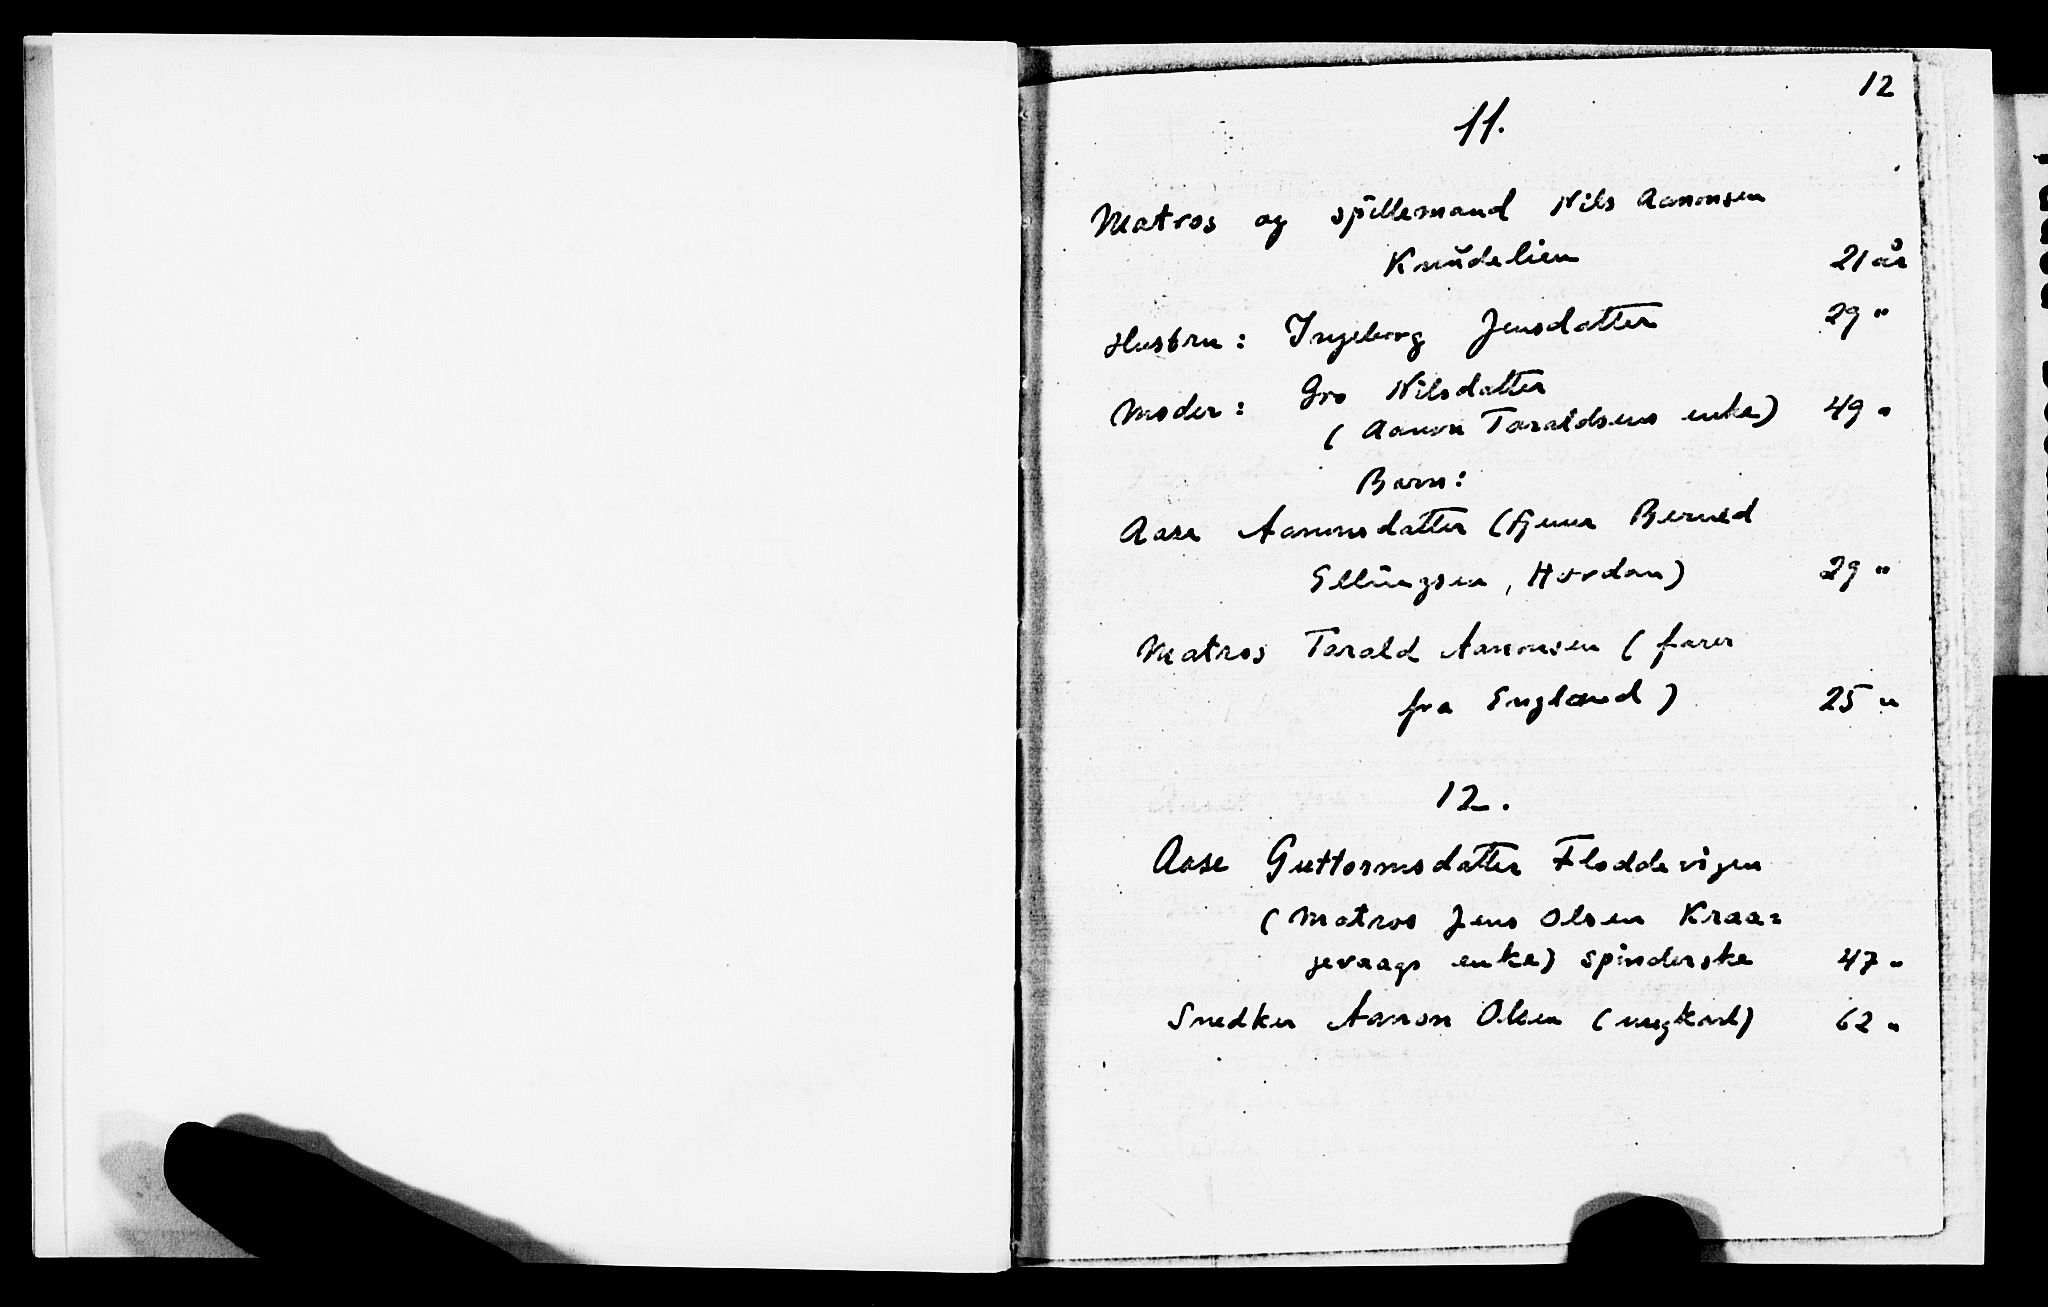 12
11.
Matros og spillemand Nils Aanonsen
Knudelien 21 år
Hustru: Ingeborg Jensdatter 29 "
Moder: Gro Nilsdatter
(Aanon Taraldsens enke) 49 "
Barn:
Aase Aanonsdatter (tjener Berned
Ellingsen, Hordan) 29 "
Matros Tarald Aanonsen (farer
fra England) 25 "
12.
Aase Guttormsdatter Floddevigen
(Matros Jens Olsen Kraa=
gevaags enke) spinderske 47 "
Snedker Aanon Olsen (ungkarl) 62 "